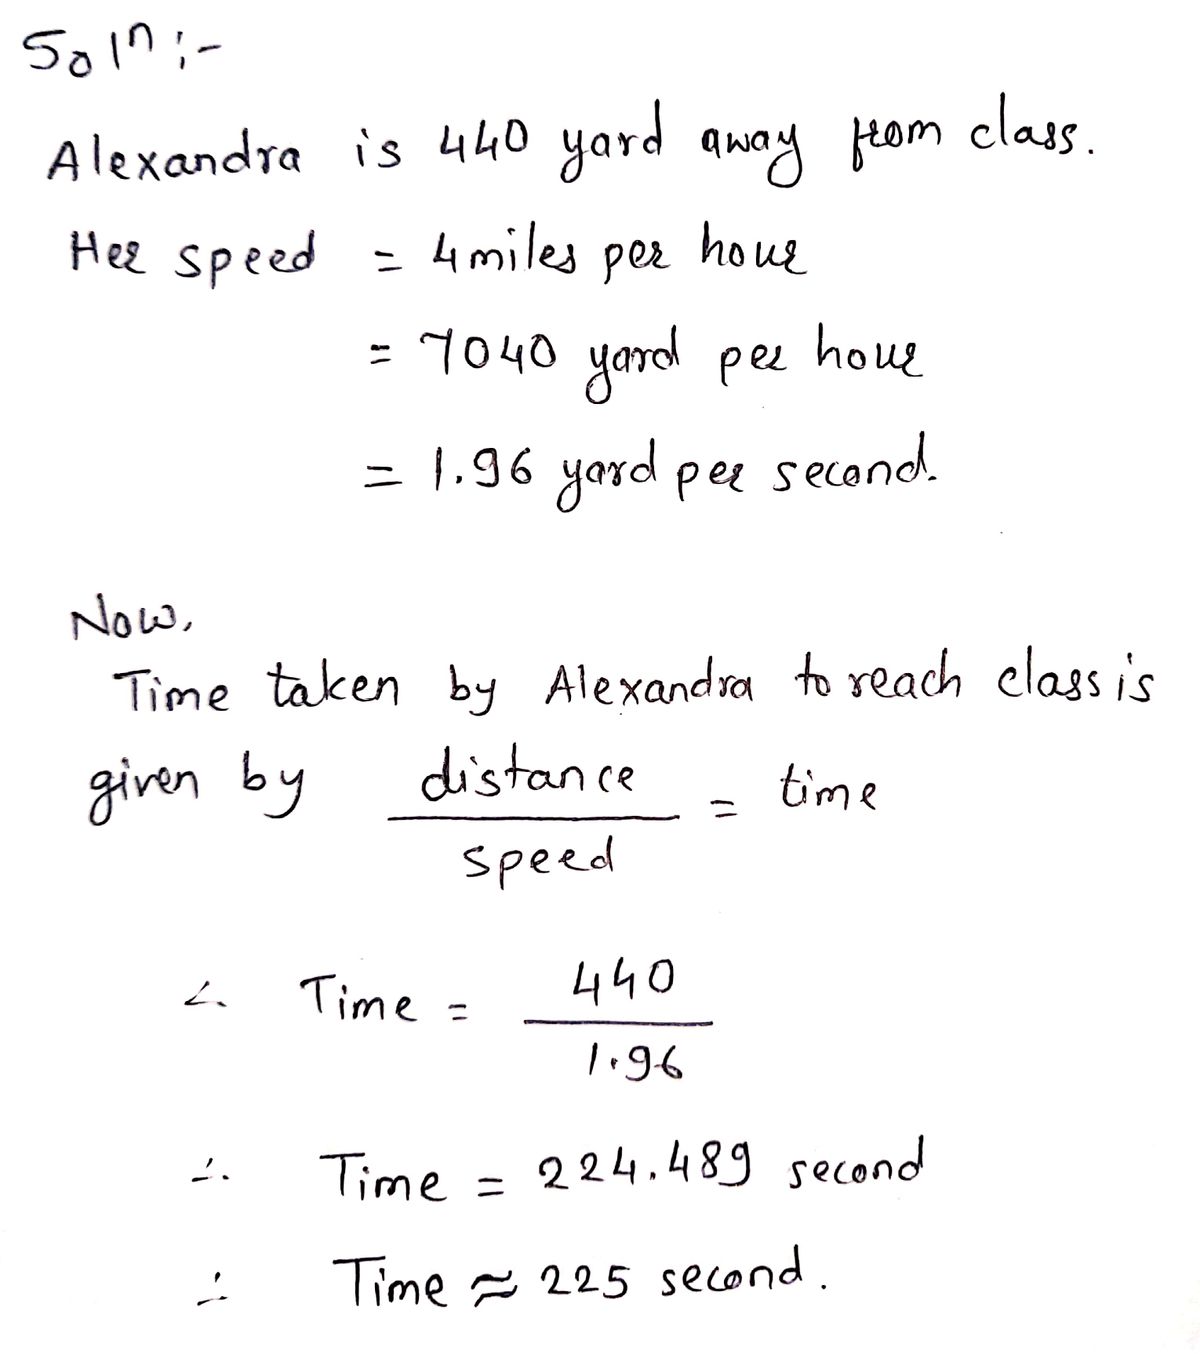 Soln :-
Alexandra is 440 yard away from class.
Her speed = 4 miles per hour
= 7040 yard per hour
= 1.96 yard per second.
Now,
Time taken by Alexandra to reach class is
given by distance / speed = time
∴ Time = 440 / 1.96
∴ Time = 224.489 second
∴ Time ≈ 225 second.